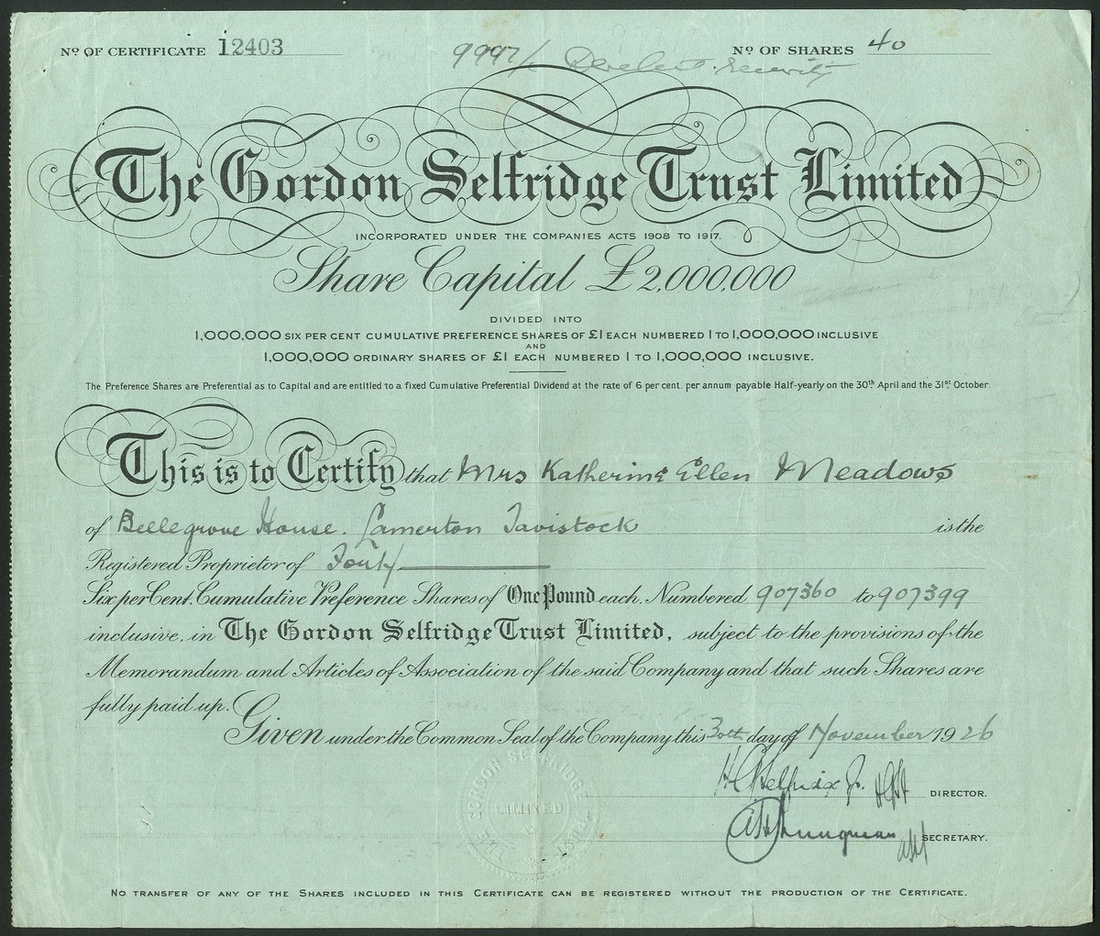 Nº OF CERTIFICATE 12403 Nº OF SHARES 40
The Gordon Selfridge Trust Limited
INCORPORATED UNDER THE COMPANIES ACTS 1908 TO 1917.
Share Capital £2,000,000
DIVIDED INTO
1,000,000 SIX PER CENT CUMULATIVE PREFERENCE SHARES OF £1 EACH NUMBERED 1 TO 1,000,000 INCLUSIVE
AND
1,000,000 ORDINARY SHARES OF £1 EACH NUMBERED 1 TO 1,000,000 INCLUSIVE.
The Preference Shares are Preferential as to Capital and are entitled to a fixed Cumulative Preferential Dividend at the rate of 6 per cent. per annum payable Half-yearly on the 30th April and the 31st October.
This is to Certify that Mrs Katherine Ellen Meadows
of Bellegrove House. Lamerton Tavistock is the
Registered Proprietor of Forty
Six per Cent. Cumulative Preference Shares of One Pound each, Numbered 907360 to 907399
inclusive, in The Gordon Selfridge Trust Limited, subject to the provisions of the
Memorandum and Articles of Association of the said Company and that such Shares are
fully paid up.
Given under the Common Seal of the Company this 30th day of November 1926
THE GORDON SELFRIDGE TRUST
LIMITED
H G Selfridge Jr. DIRECTOR.
SECRETARY.
NO TRANSFER OF ANY OF THE SHARES INCLUDED IN THIS CERTIFICATE CAN BE REGISTERED WITHOUT THE PRODUCTION OF THE CERTIFICATE.